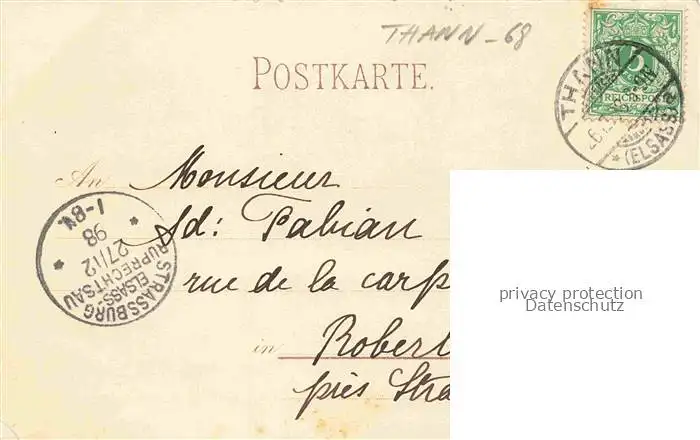 THANN - 68
POSTKARTE.
5
REICHSPOST
THANN
*(ELSASS)*
An Monsieur
Ad: Fabian
rue de la carp
in Robert
près Stra
STRASSBURG
ELSASS-
RUPRECHTSAU
27/12
98
* *
1-8V.
privacy protection
Datenschutz